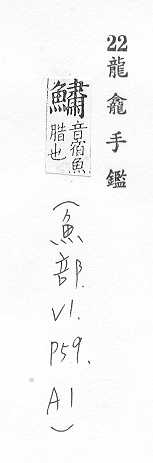 22龍龕手鑑
鱐音宿魚
腊也
(魚部.
V1.
P59.
A1)